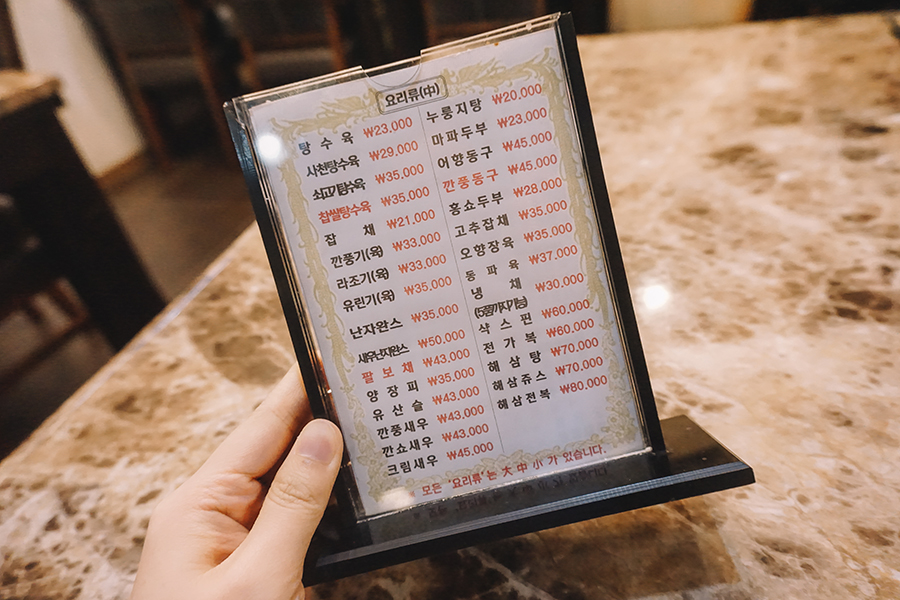 요리류(中)
탕 수 육 ₩23,000
사천탕수육 ₩29,000
쇠고기탕수육 ₩35,000
찹쌀탕수육 ₩35,000
잡 채 ₩21,000
깐풍기(육) ₩33,000
라조기(육) ₩33,000
유린기(육) ₩35,000
난자완스 ₩35,000
새우난자완스 ₩50,000
팔 보 채 ₩43,000
양 장 피 ₩35,000
유 산 슬 ₩43,000
깐풍새우 ₩43,000
깐쇼새우 ₩43,000
크림새우 ₩45,000
누룽지탕 ₩20,000
마파두부 ₩23,000
어향동구 ₩45,000
깐풍동구 ₩45,000
홍쇼두부 ₩28,000
고추잡채 ₩35,000
오향장육 ₩35,000
동 파 육 ₩37,000
냉 채 ₩30,000
샥 스 핀 ₩60,000
전 가 복 ₩60,000
해 삼 탕 ₩70,000
해삼쥬스 ₩70,000
해삼전복 ₩80,000
모든 '요리류'는 大 中 小 가 있습니다.